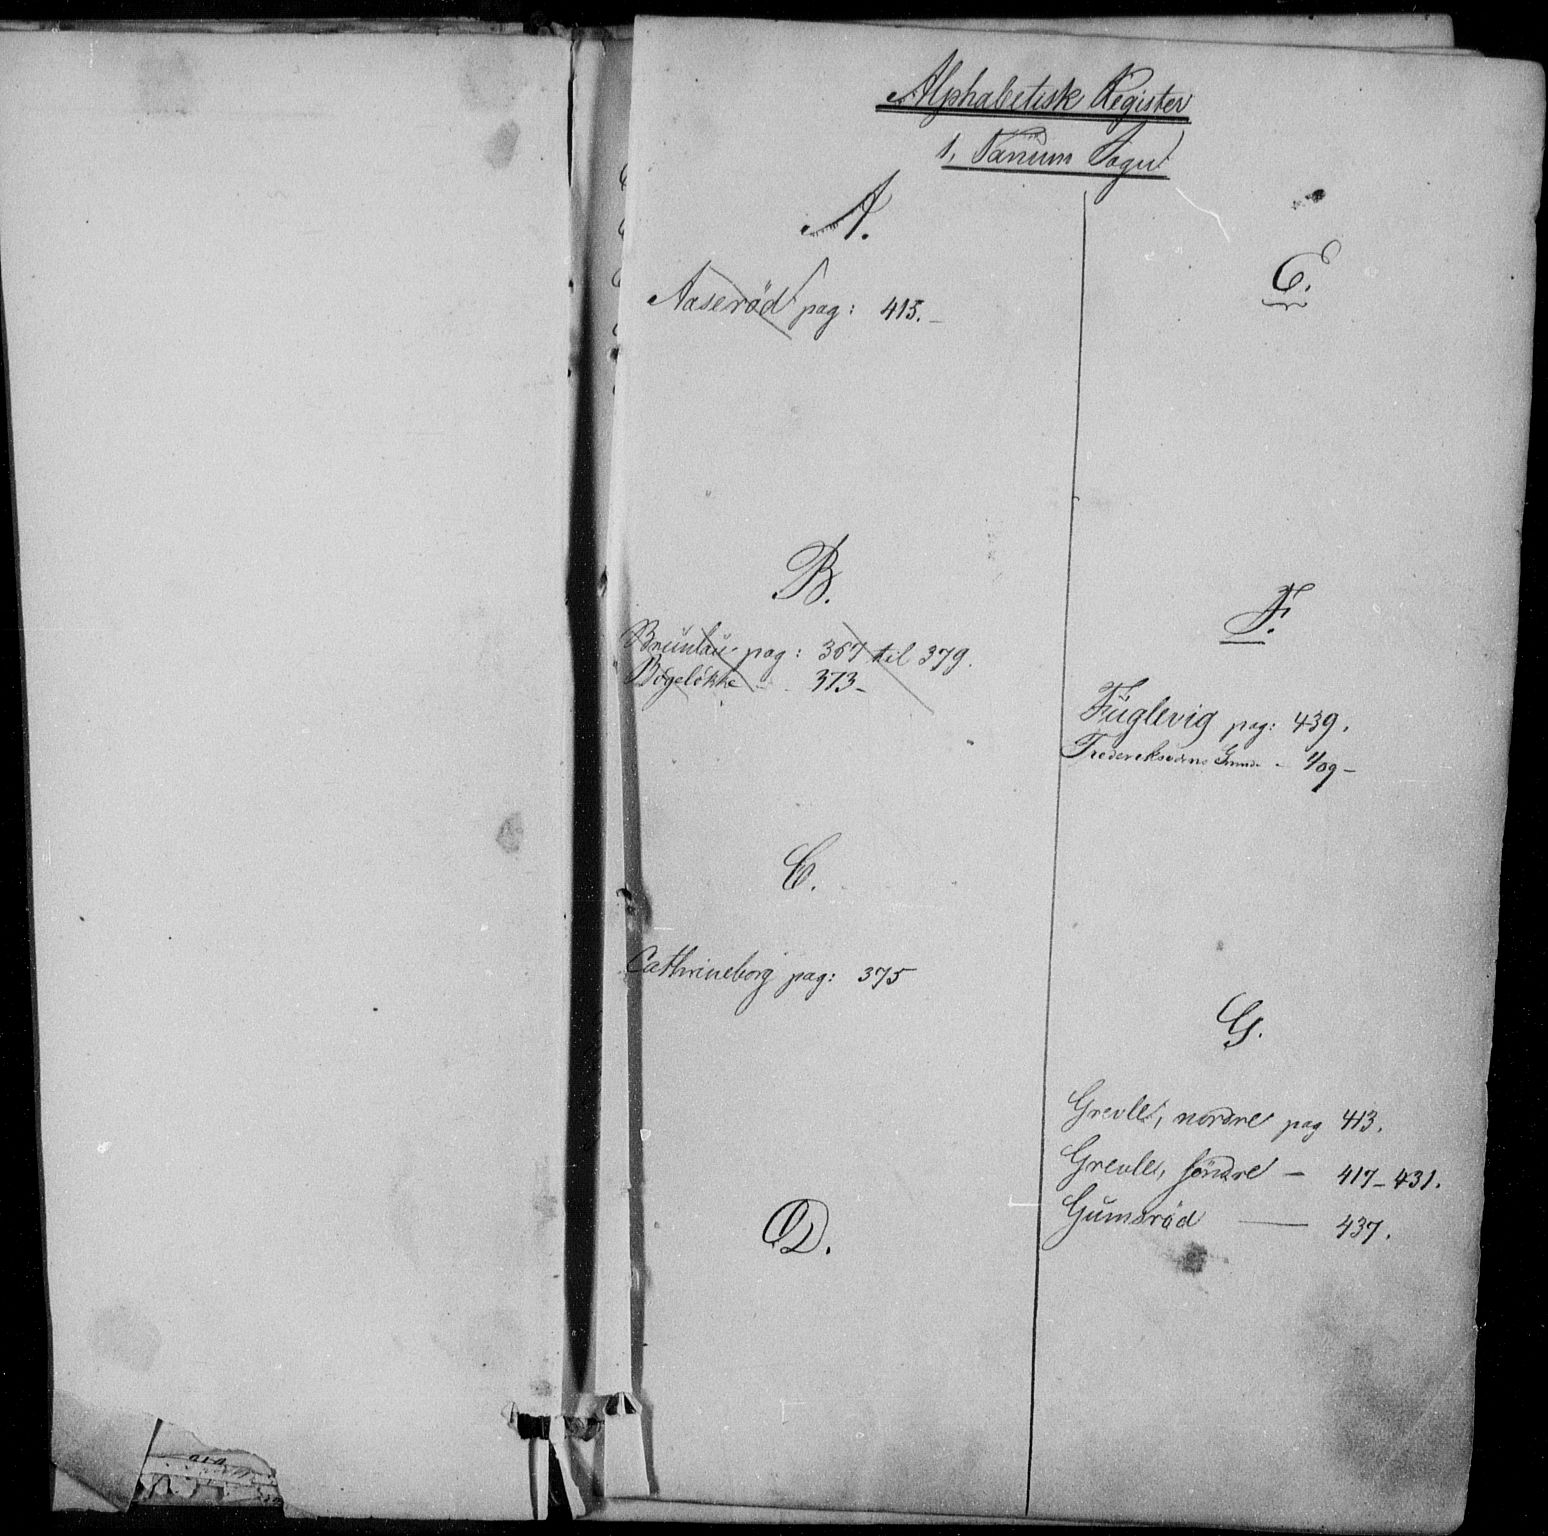 Alphabetisk Register
1, Tanum Sogn
A.
Aaserød pag: 415.-
B.
Brunlau pag: 367 til 379.
Bøgeløkke - 373-
C.
Cathrineborg pag: 375
D.
E.
F.
Fuglevig pag: 439.
Frederiksværns Grund - 409-
G.
Grevle, nordre pag 413.
Grevle, søndre - 417-431.
Gumserød — 437.